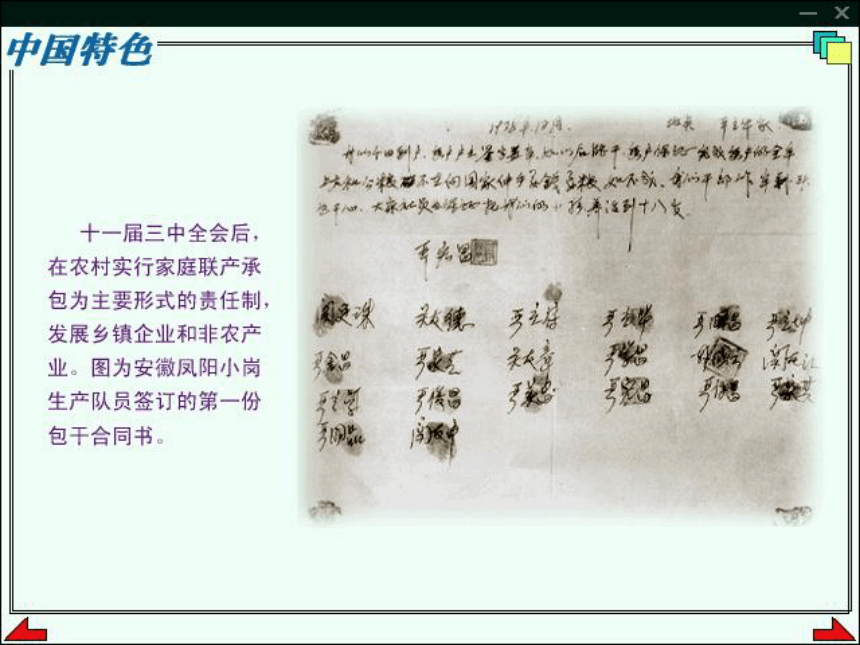 中国特色
十一届三中全会后，
在农村实行家庭联产承
包为主要形式的责任制，
发展乡镇企业和非农产
业。图为安徽凤阳小岗
生产队员签订的第一份
包干合同书。
1978年12月. 地点 严立华家
我们分田到户，每户户主签字盖章，如以后能干，每户保证完成每户的全年
上交和公粮不在向国家伸手要钱要粮，如不成，我们干部作牢割头
也干心，大家社员也保证把我们的小孩养活到十八岁。
严宏昌
关友德 严立符 严立华 严国昌 严立坤
严金昌 严家芝 关友章 严学昌 关友江
严立学 严俊昌 严美昌 严宏昌 严付昌 严家其
严国品 关友申